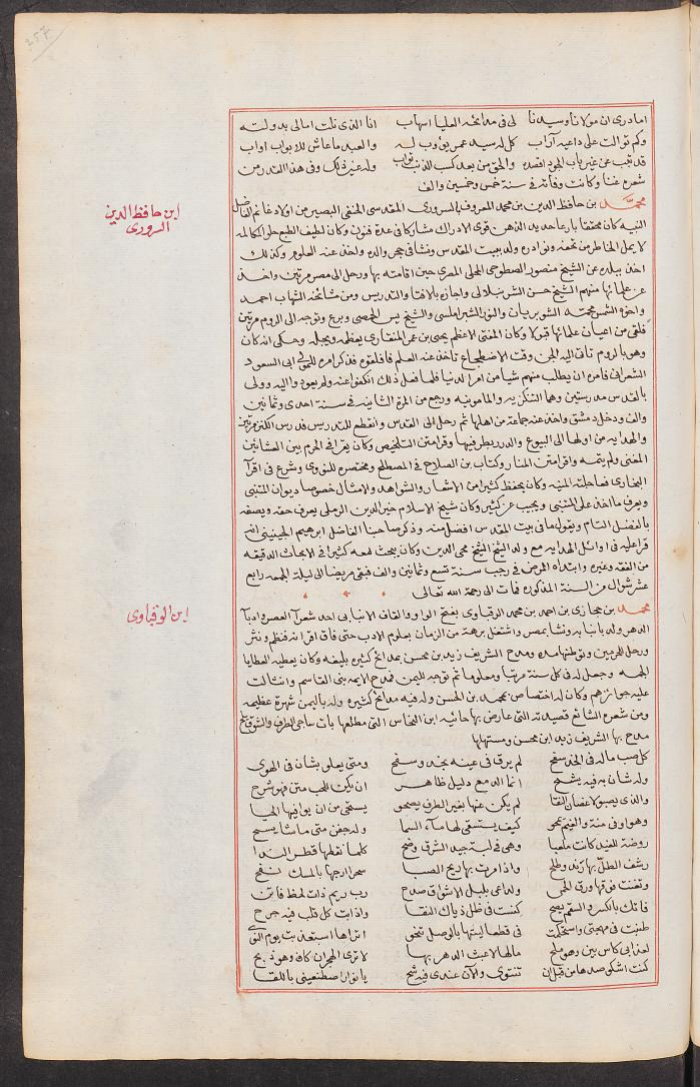 257
اما درى ان مولانا وسيدنا لى فى مدائحه العليا اسهاب انا الذى نلت امالى بدولته
وكم توالت على داعيه آراب كل له سيد عمر يؤوب له والعبد ما عاش للابواب اواب
قد تبت عن غير باب الجود اقصده والحق من بعد كسب الذنب تواب وله غير ذلك وفى هذا القدر من
شعره غنا وكانت وفاته فى سنة خمس وخمسين والف
محمد بن حافظ الدين بن محمد المعروف بالسرورى المقدسى الحنفى البصير من اولاد غانم الفاضل
النبيه كان محققا بارعا حديد الذهن قوى الادراك مشاركا فى عدة فنون وكان لطيف الطبع حلو المكالمه
لا يمل الخاطر من تحفه ونوادره ولد ببيت المقدس ونشا فى حجر والده واخذ عنه العلوم وكذلك
اخذ ببلده عن الشيخ منصور السطوحى المحلى المصرى حين اقامته بها ورحل الى مصر مرتين واخذ
عن علمائها منهم الشيخ حسن الشرنبلالى واجازه بالافتا والتدريس ومن مشائخه الشهاب احمد
واخوه الشمس محمد الشوبريان والنور الشبراملسى والشيخ يس الحمصى وبرع وتوجه الى الروم مرتين
فلقى من اعيان علمائها قبولا وكان المفتى الاعظم يحيى بن عمر المنقارى يعظمه ويجله وحكى انه كان
وهو بالروم تاتى اليه الجن وقت الاضطجاع تاخذ عنه العلم فاقلقوه فذكر امره للمولى ابى السعود
الشعرانى فامره ان يطلب منهم شيا من امر الدنيا فلما فعل ذلك انكفوا عنه ولم يعودوا اليه وولى
بالقدس مدرستين وهما التنكزيه والمامونيه ورجع من المرة الثانيه فى سنة احدى وثمانين
والف ودخل دمشق واخذ عنه جماعة من اهلها ثم رحل الى القدس وانقطع للتدريس فدرس الكنز مرتين
والهدايه من اولها الى البيوع والدرر بطرفيها وقرا متن التلخيص وكان يقرا فى الحرم بين العشائين
المغنى ولم يتمه واقرا متن المنار وكتاب بن الصلاح فى المصطلح ومختصره للنووى وشرع فى اقرآ
البخارى فعاجلته المنيه وكان يحفظ كثيرا من الاشعار والشواهد والامثال خصوصا ديوان المتنبى
ويعرف ما اخذ على المتنبى ويجيب عن كثير وكان شيخ الاسلام خير الدين الرملى يعرف حقه ويصفه
بالفضل التام ويقول ما فى بيت المقدس افضل منه وذكر صاحبنا الفاضل ابرهيم الجينينى انه
قرا عليه فى اوائل الهدايه مع ولد الشيخ الشيخ محى الدين وكان يبحث معه كثيرا فى الابحاث الدقيقه
من الفقه وغيره وابتداه المرض فى رجب سنة تسع وثمانين والف فبقى مريضا الى ليلة الجمعه رابع
عشر شوال من السنة المذكوره فمات الى رحمة الله تعالى
محمد بن حجازى بن احمد بن محمد الرقباوى بفتح الواو والقاف الانبابى احد شعرآ العصر وادبآ
الدهر ولد بانبابه ونشا بمصر واشتغل برهة من الزمان بعلوم الادب حتى فاق اقرانه فنظم ونثر
ورحل للحرمين وتوطنهما مده ومدح الشريف زيد بن محسن بمدائح كثيره بليغه وكان يعطيه العطايا
الجمه وجعل له فى كل سنة مرتبا ومعلوما ثم توجه لليمن فمدح الايمه بنى القاسم وانثالت
عليه جوائزهم وكان له اختصاص بمحمد بن الحسن وله فيه مدائح كثيره وله باليمن شهرة عظيمه
ومن شعره الشائع قصيدته التى عارض بها حائيه ابن النحاس التى مطلعها بات ساجى الطرف والشوق يلح
مدح بها الشريف زيد ابن محسن ومستهلها
كل صب ماله فى الخد سفح لم يرق فى عينه نجد وسفح ومتى يعلو بشان فى الهوى
وله شان به فيه يشح انما الدمع دليل ظاهر ان يكن للحب متن فهو شرح
والذى يصبو لاغصان النقا لم يكن عنها بغير الطرف يصحو يستقى من ان يوافيها الحيا
وهو او فى منة والغيم يمحو كيف يستسقى لها مآء السما وله جفن متى ما شا يسح
روضة للغيد كانت ملعبا وهى فى لبة جيد الشرق وضح كلما نقطها قطر الندا
رشف الطل بها رند وطلح واذا مرت بها ريح الصبا سحرا ارجها بالمسك نفح
وتغنت فوقها ورق الحمى ولداعى بلبل الاشواق صدح رب ريم ذات لحظ فاتن
فاتك بالكسر والسقم يصح كنست فى ظل ذياك النقا واذابت كل قلب فيه جرح
طنبت فى مهجتى واستحكمت فى قطعا ليتها بالوصل تنحو اتراها استعذبت يوم النوى
لعذابى كاس بين وهو ملح مالها لا عبث الدهر بها لا ترى الهجران كاف وهو ذبح
كنت اشكو صدها من قبل ان تنتوى والآن عندى فيه شح يا نوارا صطنعينى باللقا
ابن حافظ الدين
السرورى
ابن الوقباوى